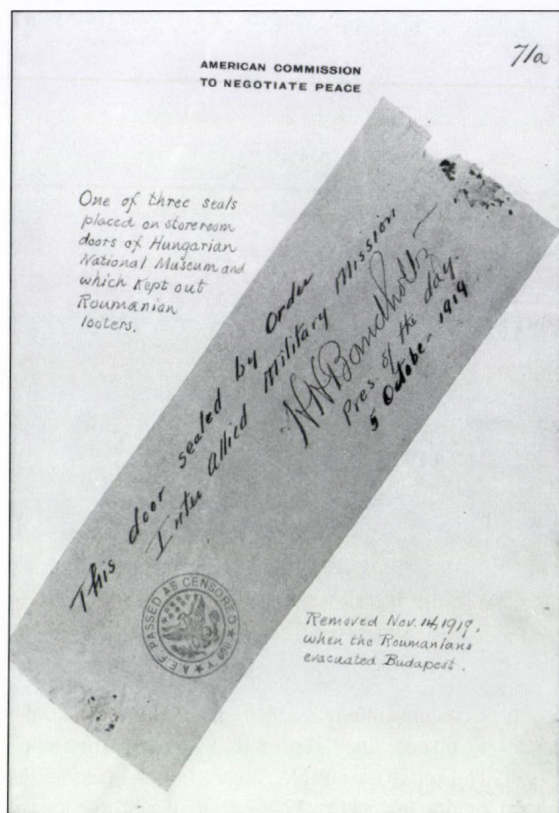 71a
AMERICAN COMMISSION
TO NEGOTIATE PEACE
One of three seals
placed on storeroom
doors of Hungarian
National Museum and
which kept out
Roumanian
looters.
This door sealed by Order
Inter Allied Military Mission
HHBandholtz
Pres of the day.
5 October - 1919
A.E.F. PASSED AS CENSORED
Removed Nov. 14, 1919,
when the Roumanians
evacuated Budapest.